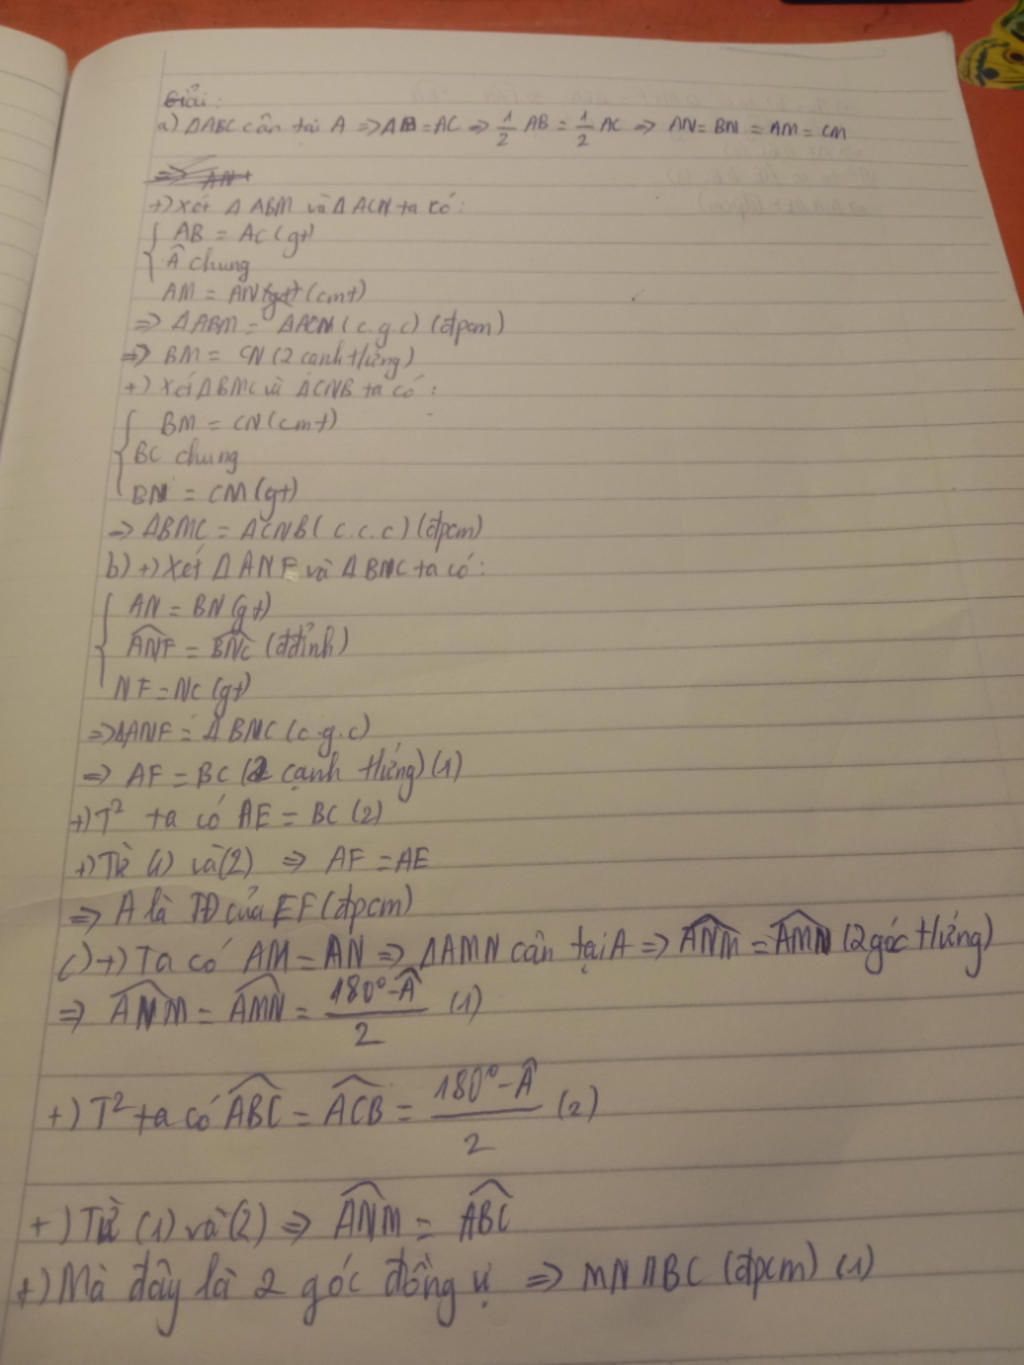 Giải:
a) ΔABC cân tại A => AB = AC => 1/2 AB = 1/2 AC => AN = BN = AM = CM
=> AN+
+) Xét ΔABM và ΔACN ta có:
{ AB = AC (gt)
Â chung
AM = AN (gt) (cmt)
=> ΔABM = ΔACN (c.g.c) (đpcm)
=> BM = CN (2 cạnh tứng)
+) Xét ΔBMC và ΔCNB ta có:
{ BM = CN (cmt)
BC chung
BN = CM (gt)
=> ΔBMC = ΔCNB (c.c.c) (đpcm)
b) +) Xét ΔANF và ΔBNC ta có:
{ AN = BN (gt)
\widehat{ANF} = \widehat{BNC} (đđỉnh)
NF = NC (gt)
=> ΔANF = ΔBNC (c.g.c)
=> AF = BC (2 cạnh tứng) (1)
+) T² ta có AE = BC (2)
+) Từ (1) và (2) => AF = AE
=> A là TĐ của EF (đpcm)
c) +) Ta có AM = AN => ΔAMN cân tại A => \widehat{ANM} = \widehat{AMN} (2 góc tứng)
=> \widehat{ANM} = \widehat{AMN} = (180° - Â)/2 (1)
+) T² ta có \widehat{ABC} = \widehat{ACB} = (180° - Â)/2 (2)
+) Từ (1) và (2) => \widehat{ANM} = \widehat{ABC}
+) Mà đây là 2 góc đồng vị => MN // BC (đpcm) (1)